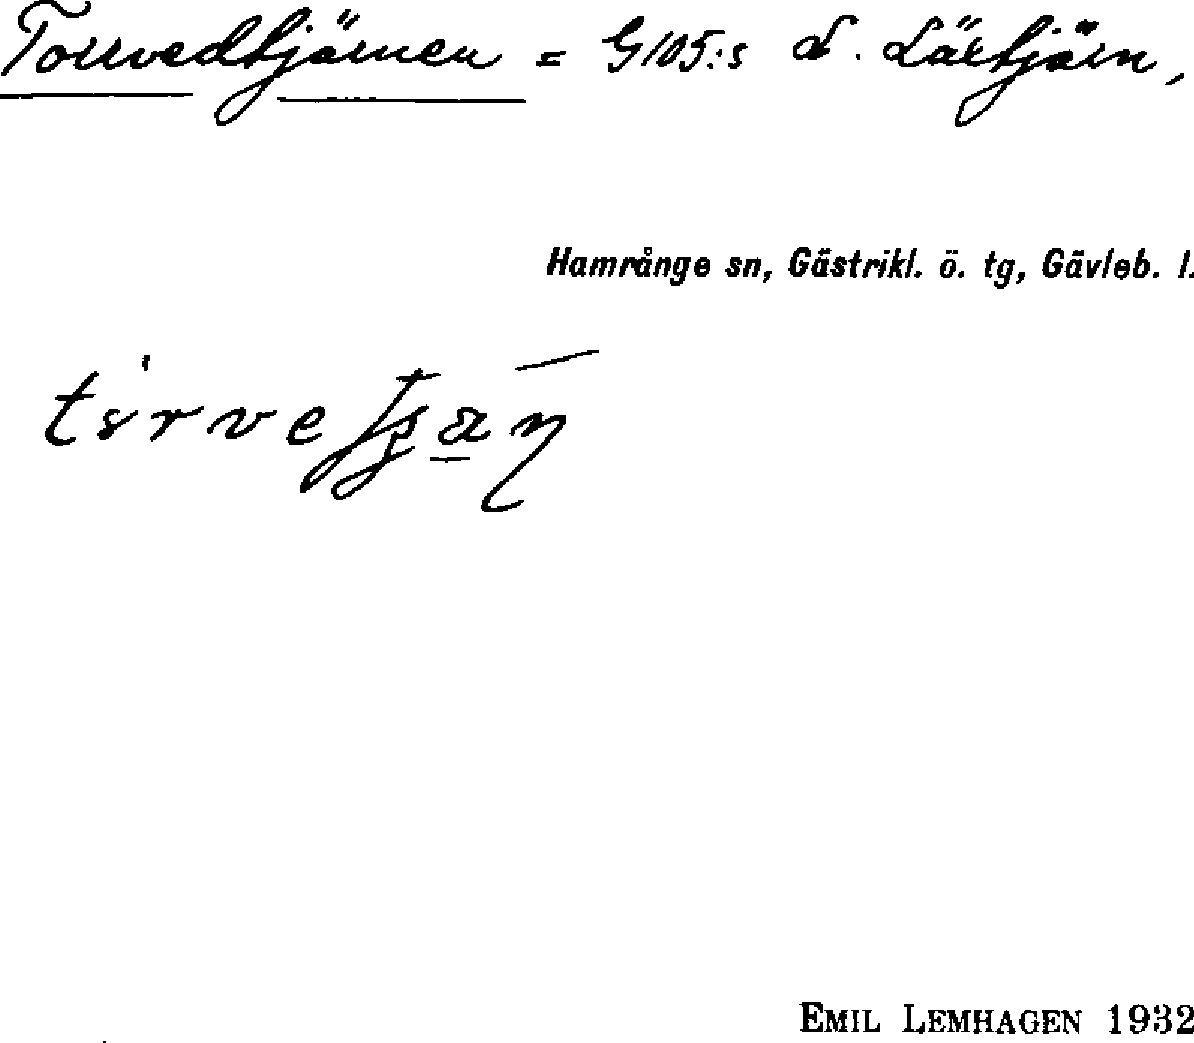 Torrvedtjärnen = G105:s L. Lärtjärn,
Hamrånge sn, Gästrikl. ö. tg, Gävleb. l.
EMIL LEMHAGEN 1932